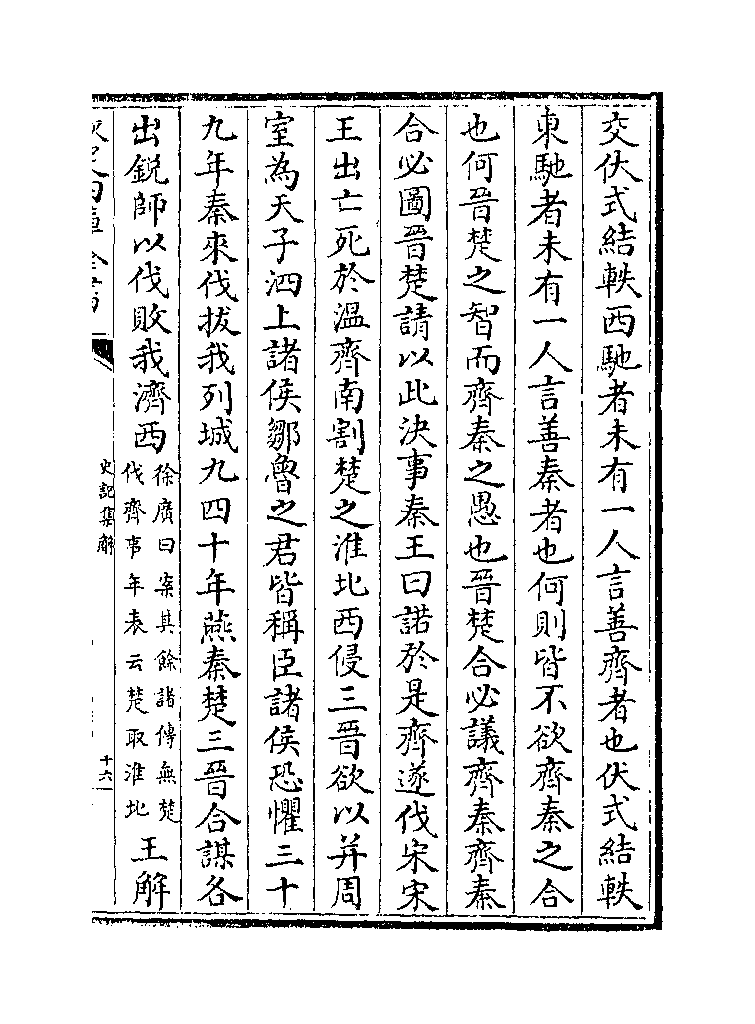 交伏式結軼西馳者未有一人言善齊者也伏式結軼
東馳者未有一人言善秦者也何則皆不欲齊秦之合
也何晉楚之智而齊秦之愚也晉楚合必議齊秦齊秦
合必圖晉楚請以此決事秦王曰諾於是齊遂伐宋宋
王出亡死於溫齊南割楚之淮北西侵三晉欲以并周
室為天子泗上諸侯鄒魯之君皆稱臣諸侯恐懼三十
九年秦來伐拔我列城九四十年燕秦楚三晉合謀各
出銳師以伐敗我濟西徐廣曰案其餘諸傳無楚伐齊事年表云楚取淮北王解
史記集解
十六